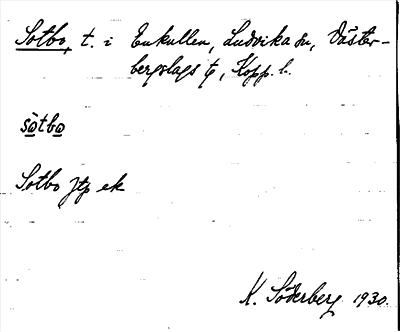 Sotbo, t. i Enkullen, Ludvika sn, Väster-
bergslags tg, Kopp. l.
sòtbo
Sotbo Jtp ek
K. Söderberg 1930.